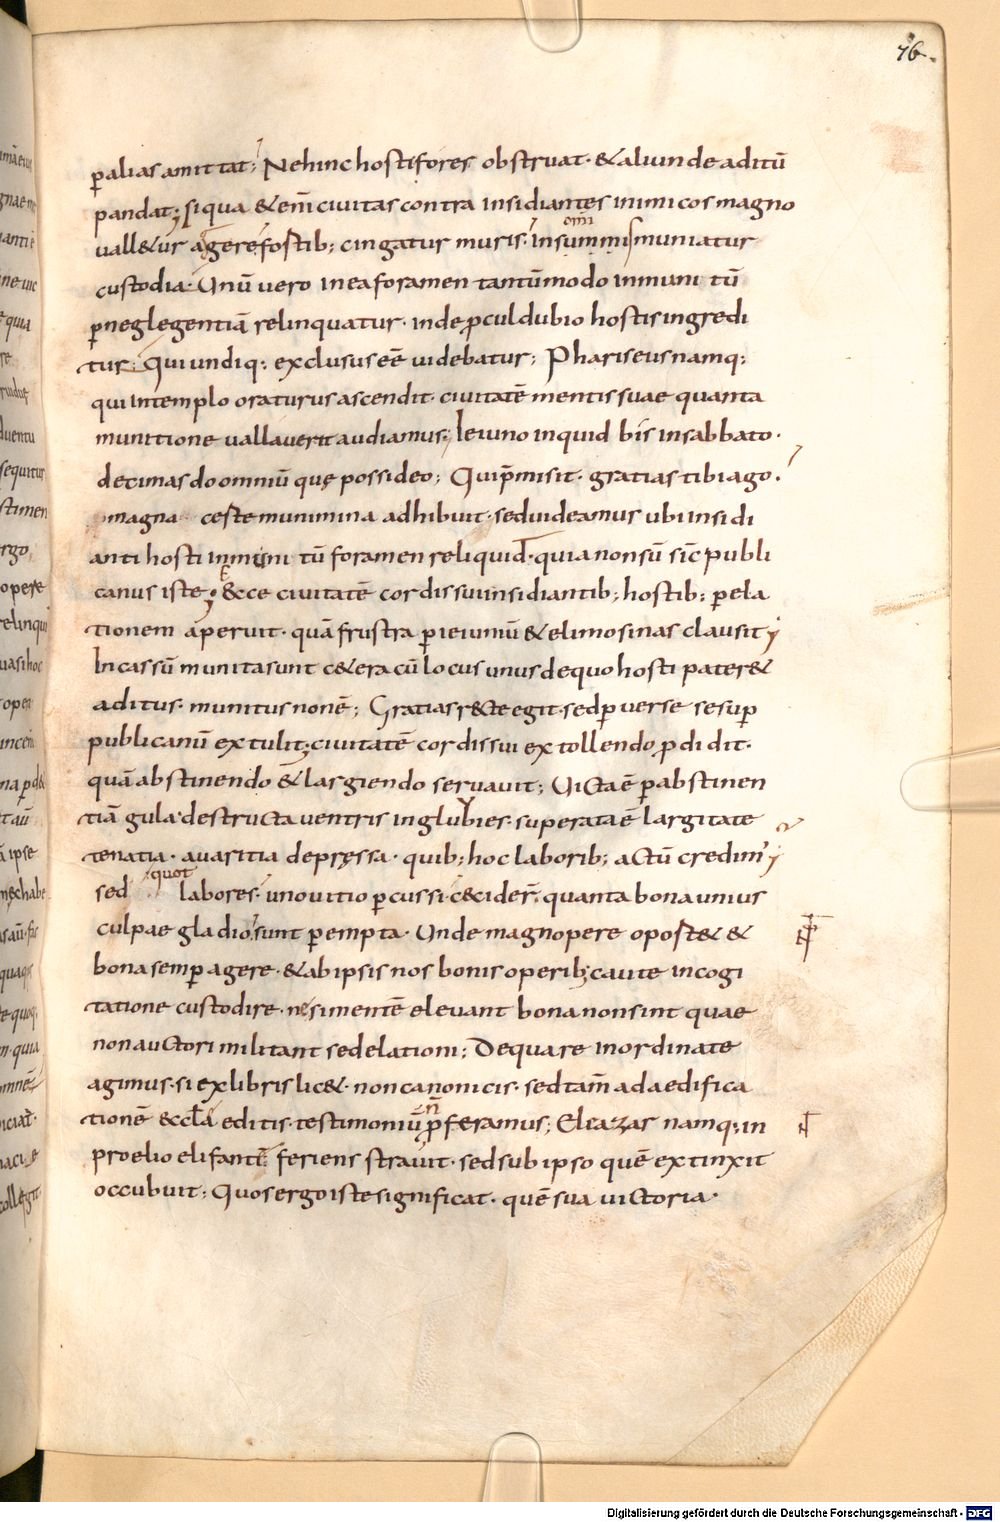 76.
p̲alias amittat; Ne hinc hosti fores obstruat· & aliunde aditū
pandat; si qua & eni̅ civitas contra insidiantes inimicos magno
vall&ur aggere fostib; cingatur muris· insumnis muniatur
omni
custodia· Unū vero in ea foramen tantūmodo inmuni tū
p̲ neglegentiā relinquatur· inde p̲cul dubio hostis ingredi
tur; Qui undiq; exclusus eē videbatur; Phariseus namq;
qui in templo oraturus ascendit· civitatē mentis suae quanta
munitione vallaverit audiamus; Ieiuno inquid bis in sabbato·
decimas do omniū quę possideo; Qui p̄misit· gratias tibi ago·
magna certe munimina adhibuit· sed videamus ubi insidi
anti hosti inmuni tū foramen reliquid· quia non sū sic̄ publi
canus iste; &cce civitatē cordis sui insidiantib; hostib; p̲ ela
tionem aperuit· quā frustra p̲ ieiuniū & elimosinas clausit;
Incassū munita sunt c&era cū locus unus de quo hosti pater&
aditus· munitus non ē; Gratias r&cte egit· sed p̲verse se sup̲
publicanū extulit; civitatē cordis sui extollendo p̲didit·
quā abstinendo & largiendo servavit; Victa ē p̲ abstinen
tiā gula· destructa ventris inglubies· superata ē largitate
tenatia· avaritia depręssa· quib; hoc laborib; actū credim';
sed quot labores· uno vitio p̲cussi c&cider̄· quanta bona unius
culpae gladio sunt p̲empta· Unde magnopere oport& &
bona semp̲ agere· & ab ipsis nos bonis operib; caute in cogi
tatione custodire· ne si mentē elevant bona non sint quae
non auctori militant sed elationi; De qua re inordinate
agimus· si ex libris lic&· non canonicis· sed tam̄ ad aedifica
tionē &ccla̅ editis· testimoniū p̲feramus; Eleazar namq; in
n̄
proelio elifantē feriens stravit· sed sub ipso quē extinxit
occubuit; Quos ergo iste significat· quē sua victoria·
Digitalisierung gefördert durch die Deutsche Forschungsgemeinschaft - DFG